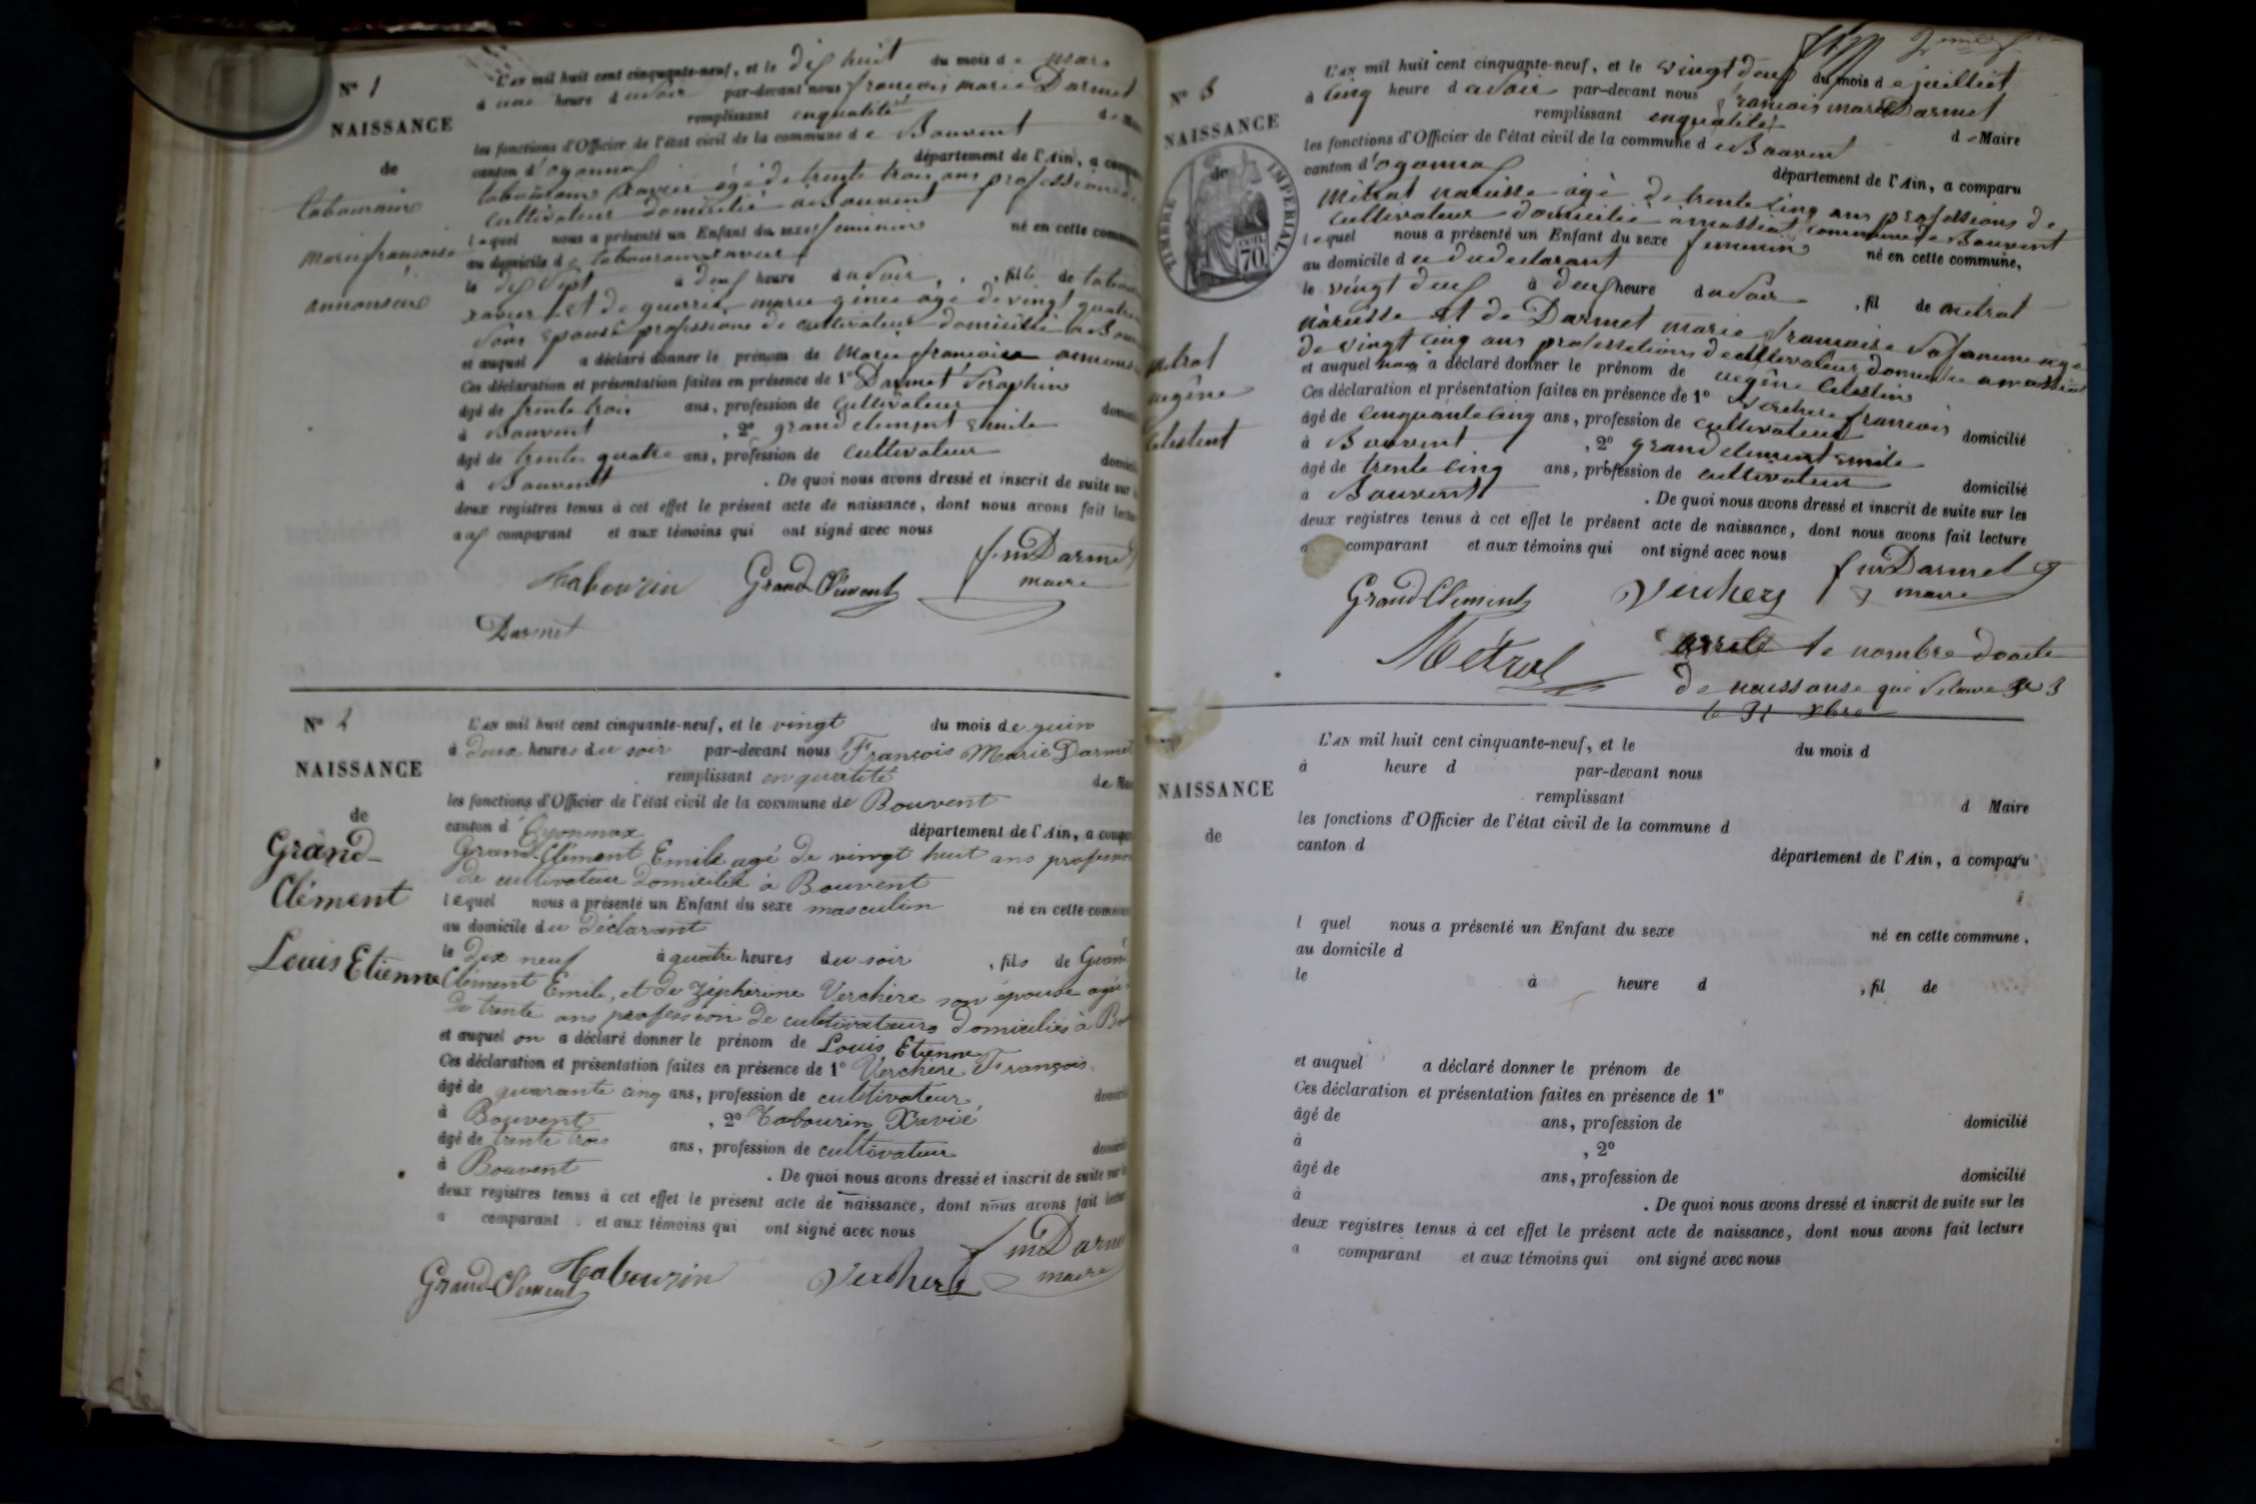 N° 1
NAISSANCE
de
tabourain
marie françoise
L'an mil huit cent cinquante-neuf, et le dix huit du mois de mars
à une heure du soir par-devant nous francois marie Darmet
remplissant enqualité de
les fonctions d'Officier de l'état civil de la commune de Bouvent
canton d'oyonnax département de l'Ain, a
xavier âgé de trente trois ans professions
cultivateur domicilié a Bouvent
lequel nous a présenté un Enfant du sexe feminin né en cette
au domicile de
le dix sept à deux heure du soir, fille de
xavier et de marie agé de vingt quatre
sons professions de cultivateur domicilié a
et auquel a déclaré donner le prénom de Marie francoise
Ces déclaration et présentation faites en présence de 1° Darmet Séraphin
âgé de trente trois ans, profession de cultivateur
à Bouvent , 2° grand clement emile
âgé de trente quatre ans, profession de cultivateur
à Bouvent . De quoi nous avons dressé et inscrit de suite sur
deux registres tenus à cet effet le présent acte de naissance, dont nous avons fait
comparant et aux témoins qui ont signé avec nous
Tabourin Grand Clément f. m Darmet
maire
Darmet
N° 2
NAISSANCE
de
Grand-
Clément
Louis Etienne
L'an mil huit cent cinquante-neuf, et le vingt du mois de juin
à deux heures du soir par-devant nous François Marie Darmet
remplissant en qualité de
les fonctions d'Officier de l'état civil de la commune de Bouvent
canton d'Oyonnax département de l'Ain, a
Grand-Clément Emile agé de vingt huit ans
de cultivateur domicilié à Bouvent
lequel nous a présenté un Enfant du sexe masculin né en cette
au domicile du déclarant
le dix neuf à quatre heures du soir , fils de
Clément Emile, et de Zéphirine Verchère son épouse agée
de trente ans profession de cultivateurs domiciliés à
et auquel on a déclaré donner le prénom de Louis Etienne
Ces déclaration et présentation faites en présence de 1° Verchère François
âgé de quarante cinq ans, profession de cultivateur
à Bouvent , 2° Tabourin Xavié
âgé de trente trois ans, profession de cultivateur
à Bouvent . De quoi nous avons dressé et inscrit de suite sur
deux registres tenus à cet effet le présent acte de naissance, dont nous avons fait
a comparant et aux témoins qui ont signé avec nous
Grand-Clément Tabourin Verchere f m Darmet
maire
N° 3
NAISSANCE
de
TIMBRE IMPERIAL
70
L'an mil huit cent cinquante-neuf, et le vingt deux du mois de juilliet
à cinq heure du soir par-devant nous francois marie Darmet
remplissant enqualité de Maire
les fonctions d'Officier de l'état civil de la commune de Bouvent
canton d'oyonnax département de l'Ain, a comparu
Métrat narcisse âgé de trente cinq ans professions de
cultivateur domicilié à massiat commune de Bouvent
lequel nous a présenté un Enfant du sexe feminin né en cette commune,
au domicile du declarant
le vingt deux à deux heure du soir , fil de metrat
narcisse et de Darmet marie francoise safamme agé
de vingt cinq ans professions de cultivateur domicilié a massiat
et auquel nous a déclaré donner le prénom de
Ces déclaration et présentation faites en présence de 1° Verchere francois
âgé de cinquante cinq ans, profession de cultivateur domicilié
à Bouvent , 2° grand clement emile
âgé de trente cinq ans, profession de cultivateur domicilié
à Bouvent . De quoi nous avons dressé et inscrit de suite sur les
deux registres tenus à cet effet le présent acte de naissance, dont nous avons fait lecture
a comparant et aux témoins qui ont signé avec nous
Grand Clément Verchere f m Darmet
maire
Métrat
arrete le nombre d'acte
de naissanse 3
le 31 Xbre
NAISSANCE
de
L'an mil huit cent cinquante-neuf, et le du mois d
à heure d par-devant nous
remplissant d Maire
les fonctions d'Officier de l'état civil de la commune d
canton d département de l'Ain, a comparu
l quel nous a présenté un Enfant du sexe né en cette commune,
au domicile d
le à heure d , fil de
et auquel a déclaré donner le prénom de
Ces déclaration et présentation faites en présence de 1°
âgé de ans, profession de domicilié
à , 2°
âgé de ans, profession de domicilié
à . De quoi nous avons dressé et inscrit de suite sur les
deux registres tenus à cet effet le présent acte de naissance, dont nous avons fait lecture
a comparant et aux témoins qui ont signé avec nous